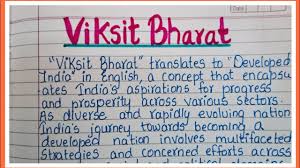 Viksit Bharat
"Viksit Bharat" translates to "Developed
India" in English, a concept that encapsu
ates India's aspirations for progress
and prosperity across various sectors.
As diverse and rapidly evolving nation
India's journey towards becoming a
developed nation involves multifaceted
strategies and concerned efforts across